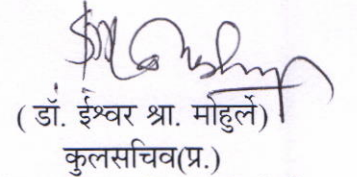 ( डॉ. ईश्वर श्रा. मोहुर्ले)
कुलसचिव(प्र.)